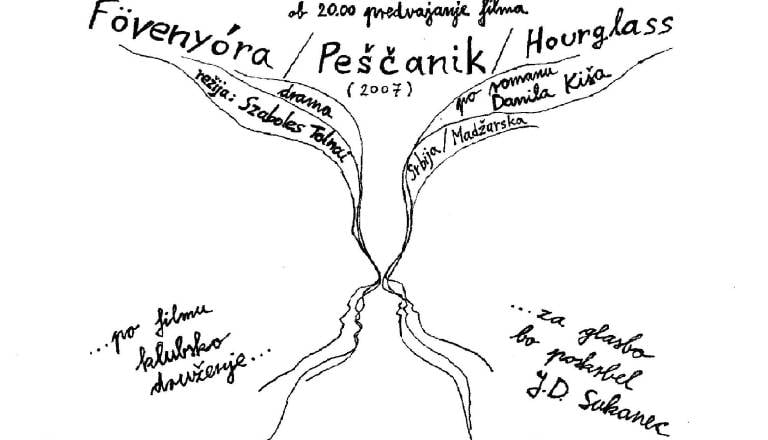 ob 20.00 predvajanje filma
Fövenyóra / Peščanik / Hourglass
(2007)
drama
režija: Szabolcs Tolnai
po romanu
Danila Kiša
Srbija / Madžarska
...po filmu
klubsko
druženje...
...za glasbo
bo poskrbel
J.D. Sukanec